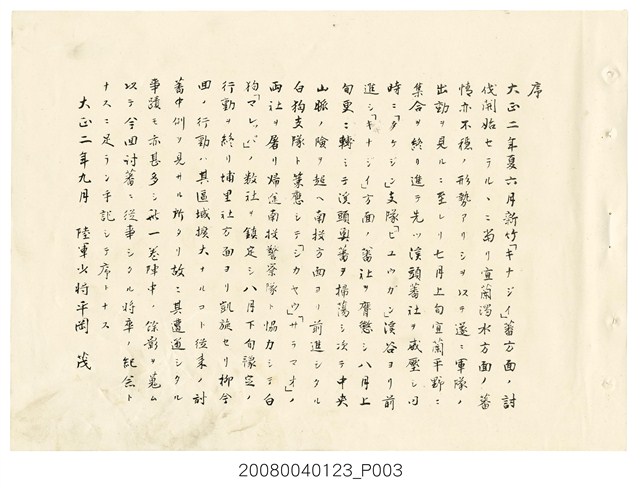 序
大正二年夏六月新竹「キナジイ」蕃方面ノ討
伐開始セラルヽニ当リ宜蘭濁水方面ノ蕃
情亦不穏ノ形勢アリシヲ以テ遂ニ軍隊ノ
出動ヲ見ルニ至レリ七月上旬宜蘭平野ニ
集合ヲ終リ進テ先ツ渓頭蕃社ヲ威圧シ同
時ニ「タケジン」支隊「ピユウガン」渓谷ヨリ前
進シ「キナジイ」方面ノ蕃社ヲ膺懲シ八月上
旬更ニ転シテ渓頭奥蕃ヲ掃蕩シ次テ中央
山脈ノ険ヲ超ヘ南投方面ヨリ前進シタル
白狗支隊ト策応シテ「シカヤウ」「サラマオ」ノ
両社ヲ屠リ帰途南投警察隊ト協力シテ白
狗「マレッパ」ノ数社ヲ鎮定シ八月下旬予定ノ
行動ヲ終リ埔里社方面ヨリ凱旋セリ抑今
回ノ行動ハ其区域拡大ナルコト従来ノ討
蕃中例ヲ見サル所タリ故ニ其遭遇シタル
事蹟モ亦甚多シ此一巻陣中ノ余影ヲ蒐ム
以テ今回討蕃ニ従事シタル将卒ノ紀念ト
ナスニ足ラン乎記シテ序トナス
大正二年九月　陸軍少将平岡　茂
20080040123_P003